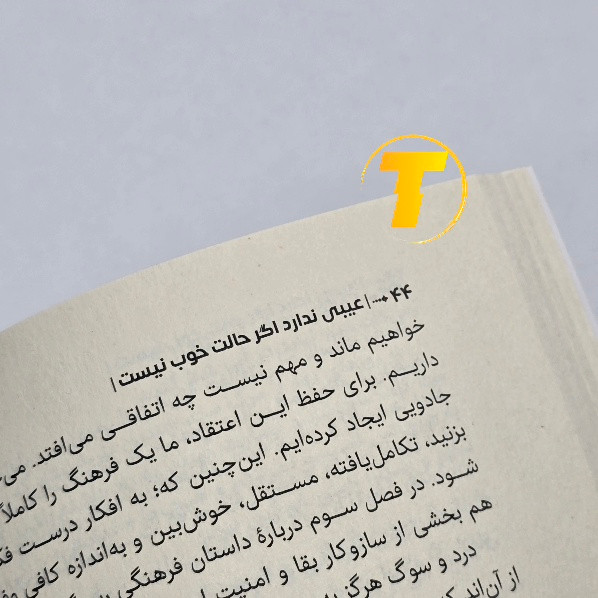 T
۴۴ ... | عیبی ندارد اگر حالت خوب نیست |
خواهیم ماند و مهم نیست چه اتفاقی می‌افتد.
داریم. برای حفظ این اعتقاد، ما یک فرهنگ را کاملاً
جادویی ایجاد کرده‌ایم. این‌چنین که؛ به افکار درست
بزنید، تکامل‌یافته، مستقل، خوش‌بین و به‌اندازه کافی
شود. در فصل سوم دربارهٔ داستان فرهنگی
هم بخشی از سازوکار بقا و امنیت
درد و سوگ هرگز
از آن‌اند